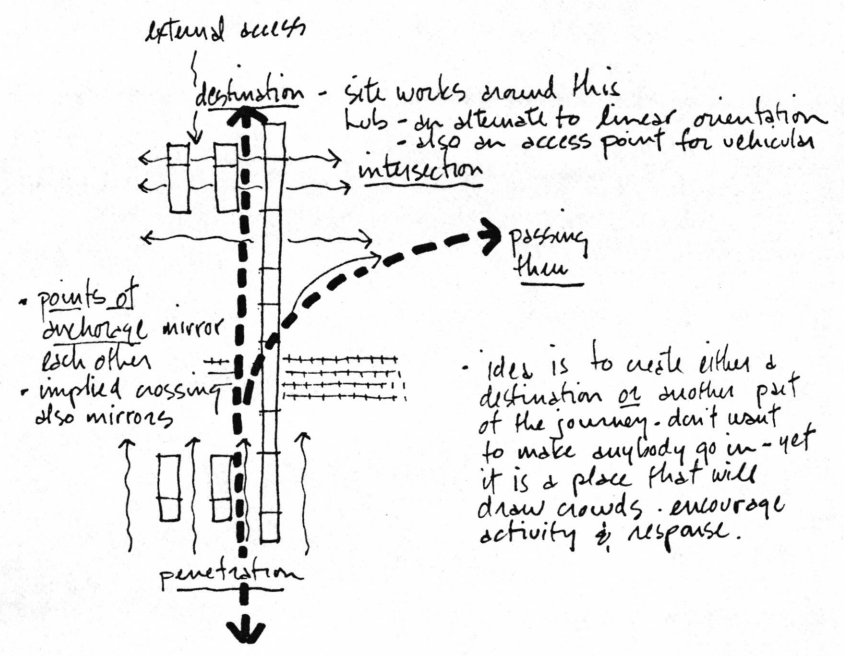 external access
destination - site works around this
hub - an alternate to linear orientation
- also an access point for vehicular
intersection
passing
thru
• points of
anchorage mirror
each other
• implied crossing
also mirrors
• idea is to create either a
destination or another part
of the journey. don't want
to make anybody go in - yet
it is a place that will
draw crowds. encourage
activity & response.
penetration